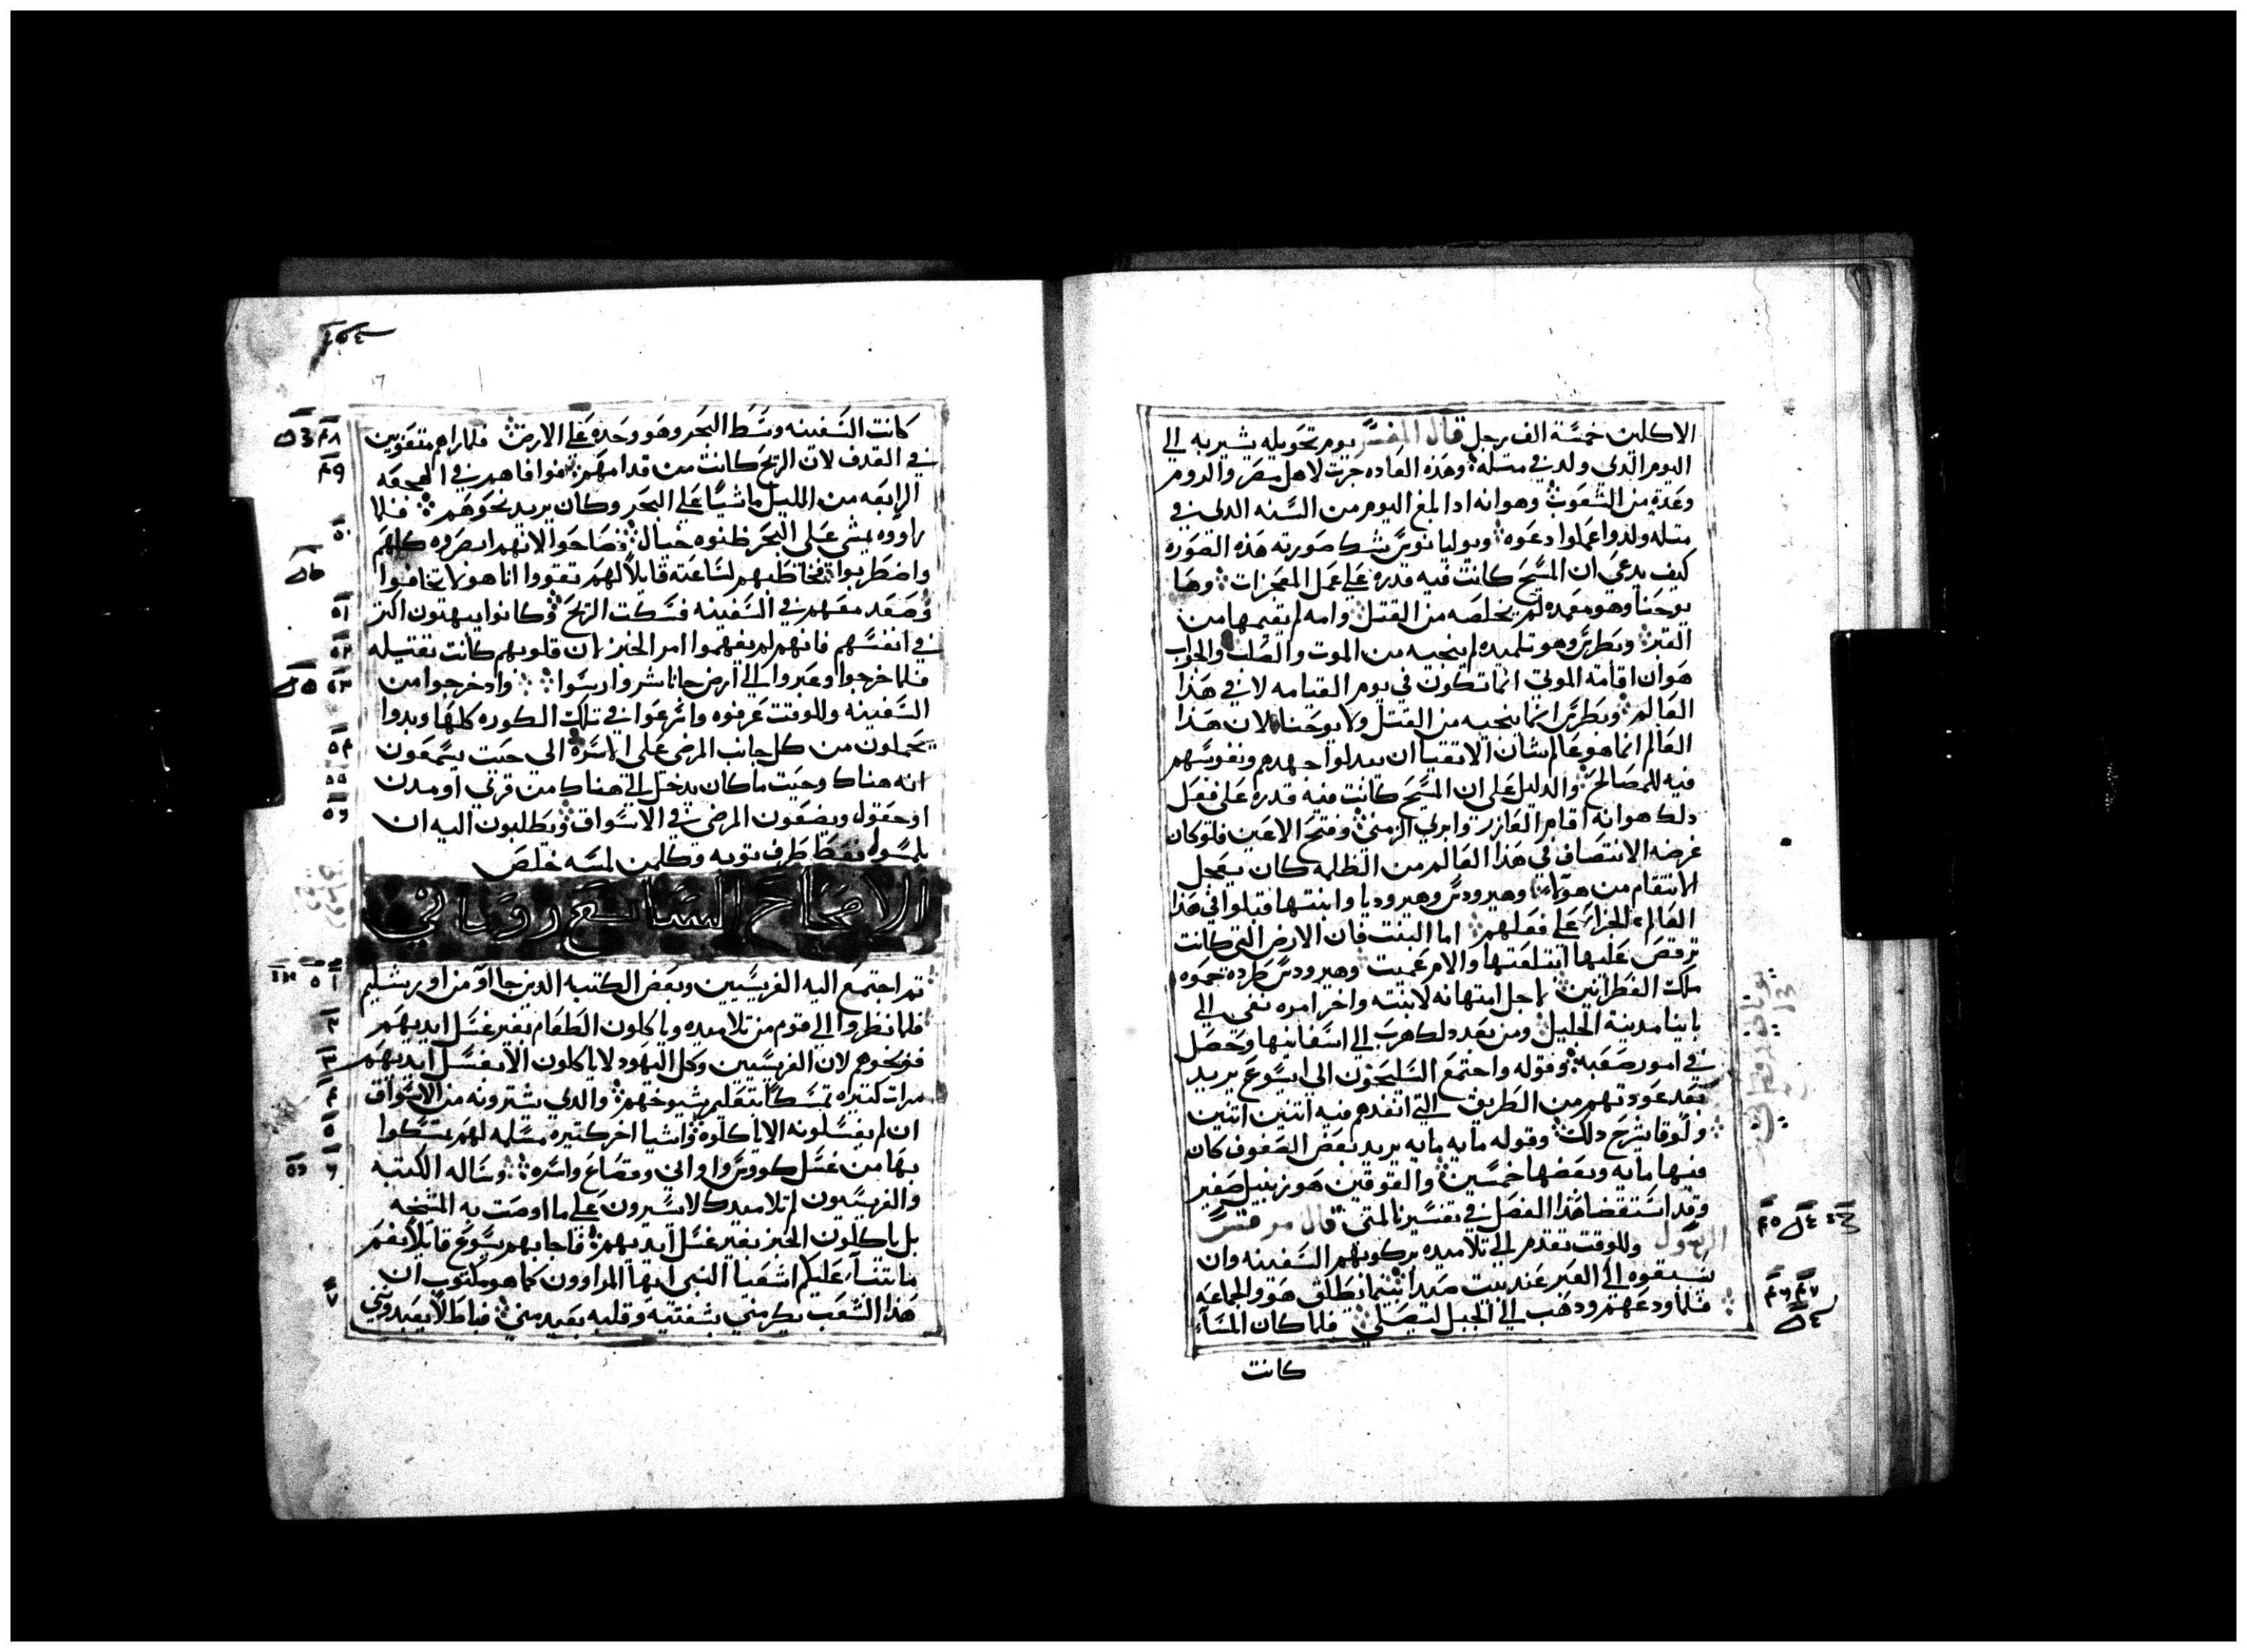 الاكلين خمسة الف رجل قال المفسر يوم تحويله يشير به الي
اليوم الدي ولد في متله وهذه العاده جرت لاهل مصر والروم
وعدة من الشعوب وهو انه ادا بلغ اليوم من السنه الدي في
متله ولدوا عملوا دعوه ويوليانوس شك صورته هذه الصوره
كيف يدعي ان المسيح كانت فيه قدره علي عمل المعجزات وها
يوحنا وهو معمده لم يخلصه من القتل وامه لم يقيمها من
القبر وبطرس وهو تلميده لم ينجيه من الموت والصلب والجواب
هو ان اقامة الموتي انما تكون في يوم القيامه لا في هذا
العالم وبطرس انما ينجيه من القتل ولا يوحنا لان هذا
العالم انما هو عالم شان الاتقيا ان يبدلوا جهدهم ونفوسهم
فيه للمصالح والدليل علي ان المسيح كانت فيه قدره علي فعل
دلك هو انه اقام العازر وابري الزمني وفتح الاعين فلو كان
غرضه الانتصاف في هذا العالم من الظلمه كان يعجل
الانتقام من هولاء وهيرودس وهيروديا وابنتها قبلوا في هذا
العالم الجزاء علي فعلهم اما البنت فان الارض التي كانت
ترقص عليها ابتلعتها والام عميت وهيرودس طرده حموه
ملك القطرانين لاجل امتهانه لابنته واخر امره نفي الي
باينا مدينة الجليل ومن بعد دلك هرب الي اسفانيا وحصل
في امور صعبه وقوله واجتمع السليحون الي ايسوع يريد
بعد عودتهم من الطريق التي انفدهم فيه اتنين اتنين
ولوقا يشرح دلك وقوله مايه مايه يريد بعض الصفوف كان
فيها مايه وبعضها خمسين والقوفين هو زنبيل صغير
وقد استقضا هذا الفصل في تفسيرنا لمتي قال مرقس
الرسول وللوقت تقدم الي تلاميده بركوبهم السفينه وان
يسبقوه الي العبر عند بيت صيدا بينما يطلق هو والجماعه
فلما ودعهم ودهب الي الجبل ليصلي فلما كان المساء
كانت
كانت السفينه وسط البحر وهو وحده علي الارض فلما راهم متعوبين
في القدف لان الريح كانت من قدامهم فوافاهم في الهجعه
الرابعه من الليل ماشيا علي البحر وكان يريد نحوهم فلما
راووه يمشي علي البحر ظنوه خيال فصاحوا لانهم ابصروه كلهم
واضطربوا فخاطبهم لساعته قايلا لهم تقووا انا هو لا تخافوا
وصعد معهم في السفينه فسكت الريح وكانوا يبهتون اكتر
في انفسهم فانهم لم يفهموا امر الخبز لان قلوبهم كانت تقتيله
فلما خرجوا وعبروا الي ارض جاناشر وارسوا واد خرجوا من
السفينه وللوقت عرفوه واسرعوا في تلك الكوره كلها وبدوا
يحملون من كل جانب المرضي علي الاسره الي حيت يسمعون
انه هناك وحيت ما كان يدخل الي هناك من قري او مدن
او حقول ويضعون المرضي في الاسواق ويطلبون اليه ان
يلمسوا فقط طرف توبه وكلمن لمسه خلص
الاصحاح السابع روماني
تم اجتمع اليه الفريسيين وبعض الكتبه الدين جااوا من اورشليم
فلما نظروا الي قوم من تلاميده وياكلون الطعام بغير غسل ايديهم
فوبخوهم لان الفريسيين وكل اليهود لا ياكلون الا بغسل ايديهم
مرات كتيره تمسكا بتعليم شيوخهم والدي يشترونه من الاسواق
ان لم يغسلونه لا ياكلوه واشيا اخر كتيره مسلمه لهم يتمسكوا
بها من غسل كووس واواني وقصاع واسره وساله الكتبه
والفريسيون لم تلاميدك لا يسيرون علي ما اوصت به المشيخه
بل ياكلون الخبز بغير غسل ايديهم فاجابهم يسوع قايلا نعم
ما يتنبا عليكم اشعيا النبي ايها المراوون كما هو مكتوب ان
هذا الشعب يكرمني بشفتيه وقلبه بعيد مني فباطلا يعبدونني